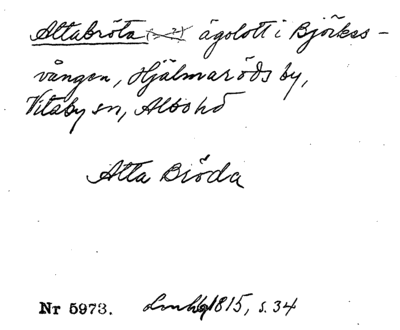 Attabröta ägolott i Björkes-
vången, Hjälmaröds by,
Vitaby sn, Albo hd
Atta Bröda
Nr 5973. Lmhg 1815, s. 34